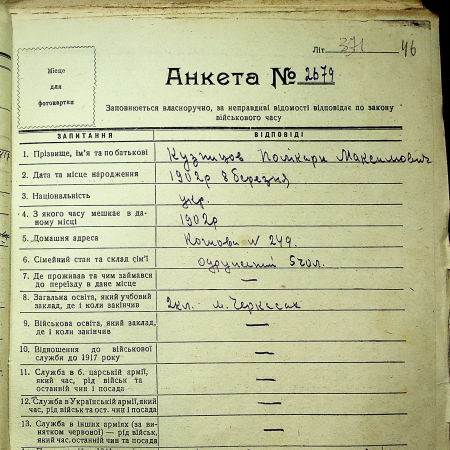 Літ 371 46
Місце
для
фотокартки
Анкета № 2679
Заповнюється власноручно, за неправдиві відомості відповідає по закону
військового часу
ЗАПИТАННЯ ВІДПОВІДІ
1. Прізвище, ім'я та по батькові Кузнцов Полікарп Максимович
2. Дата та місце народження 1902р 8 березня
3. Національність укр.
4. З якого часу мешкає в да-
ному місці 1902р
5. Домашня адреса № 249.
6. Сімейний стан та склад сім'ї 5 чол.
7. Де проживав та чим займався
до переїзду в дане місце —
8. Загальна освіта, який учбовий
заклад, де і коли закінчив 2кл. м. Черкасах
9. Військова освіта, який заклад,
де і коли закінчив —
10. Відношення до військової
служби до 1917 року —
11. Служба в б. царській армії,
який час, рід військ та
останній чин і посада —
12. Служба в Українській армії, який
час, рід військ та ост. чин і посада —
13. Служба в інших арміях (за ви-
нятком червоної) — рід військ,
який час, останній чин та посада —